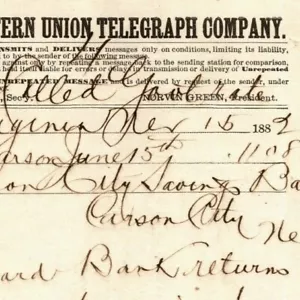 TERN UNION TELEGRAPH COMPANY.
NSMITS and DELIVERS messages only on conditions, limiting its liability,
t to by the sender of the following message.
against only by repeating a message back to the sending station for comparison,
hold itself liable for errors or delays in transmission or delivery of Unrepeated
UNREPEATED MESSAGE and is delivered by request of the sender, under
, Sec'y. NORVIN GREEN, President.
ginia Nev 15 1883
arson June 15th 1108
on City Savings Ba
Carson City
Ne
ard Bank returns